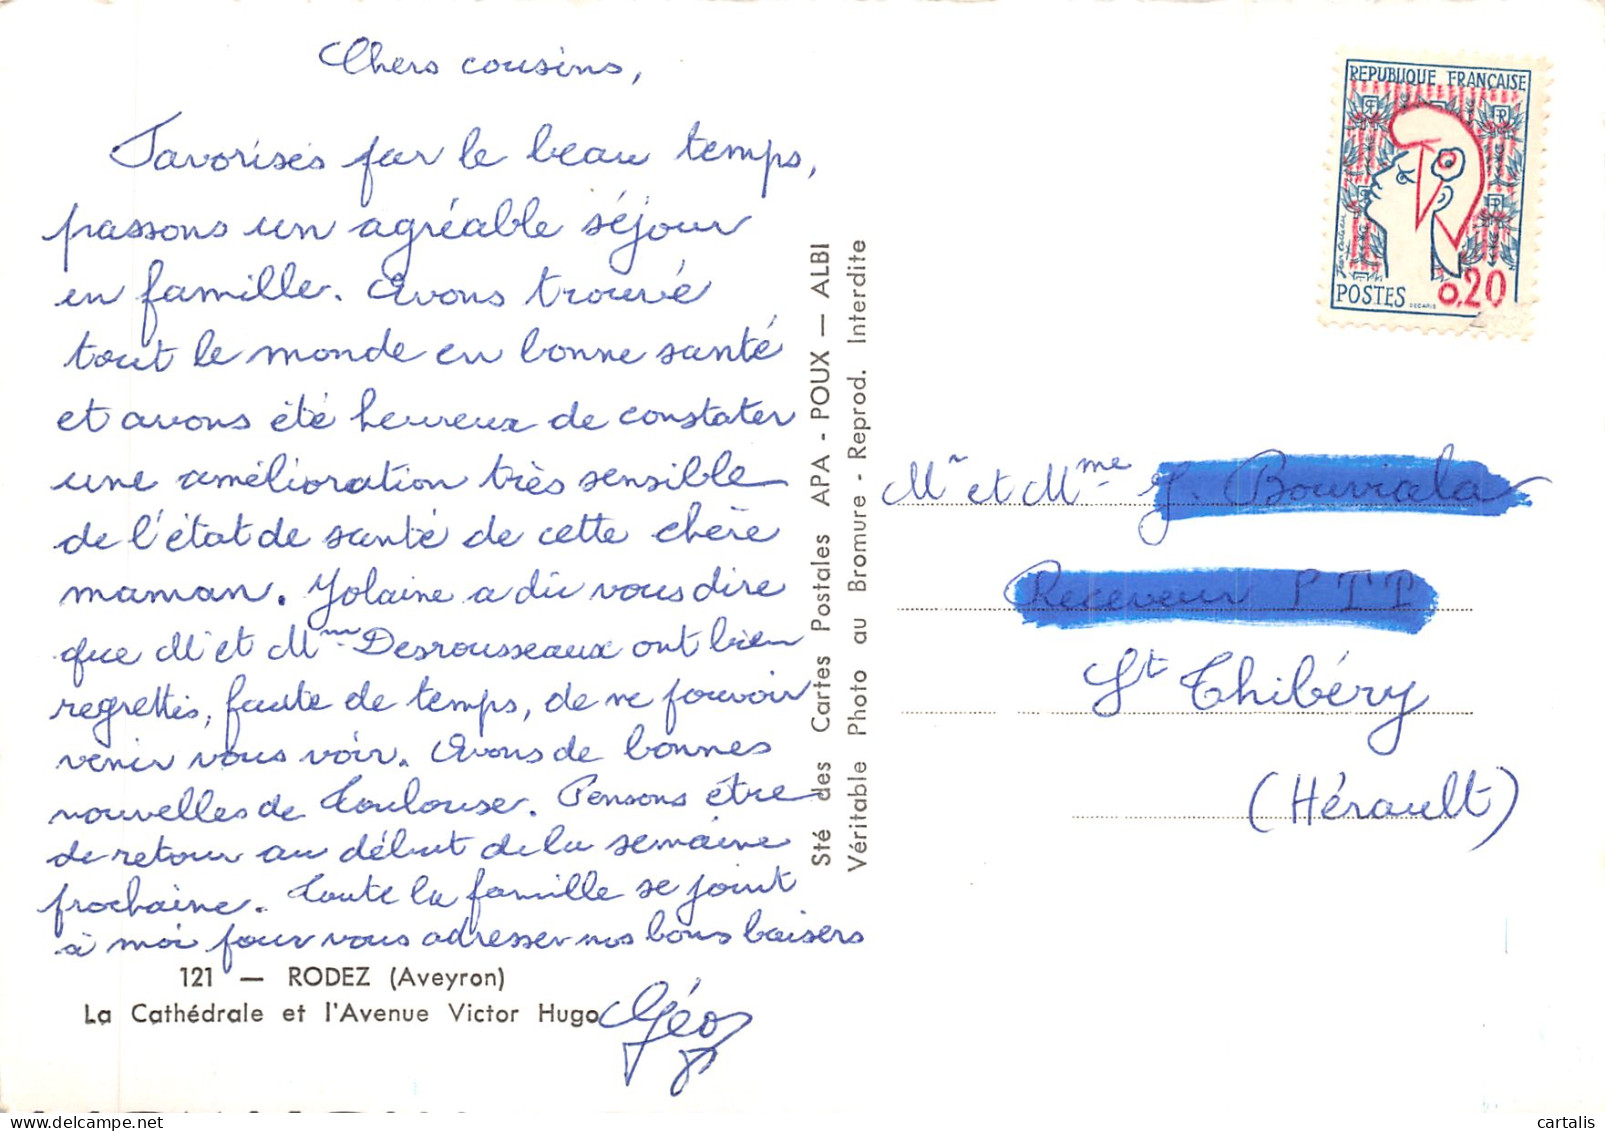 Chers cousins,
Favorisés par le beau temps,
passons un agréable séjour
en famille. Avons trouvé
tout le monde en bonne santé
et avons été heureux de constater
une amélioration très sensible
de l'état de santé de cette chère
maman. Yolaine a dû vous dire
que M et Mme Desrousseaux ont bien
regrettés, faute de temps, de ne pouvoir
venir vous voir. Avons de bonnes
nouvelles de Toulouse. Pensons être
de retour au début de la semaine
prochaine. Toute la famille se joint
à moi pour vous adresser nos bons baisers
Géo
121 — RODEZ (Aveyron)
La Cathédrale et l'Avenue Victor Hugo
Sté des Cartes Postales APA - POUX — ALBI
Véritable Photo au Bromure - Reprod. Interdite
REPUBLIQUE FRANÇAISE
RF
RF
RF
Jean Cocteau
POSTES DECARIS 0,20
Mr et Mme J. Bouviala
Receveur PTT
St Thibéry
(Hérault)
cartalis